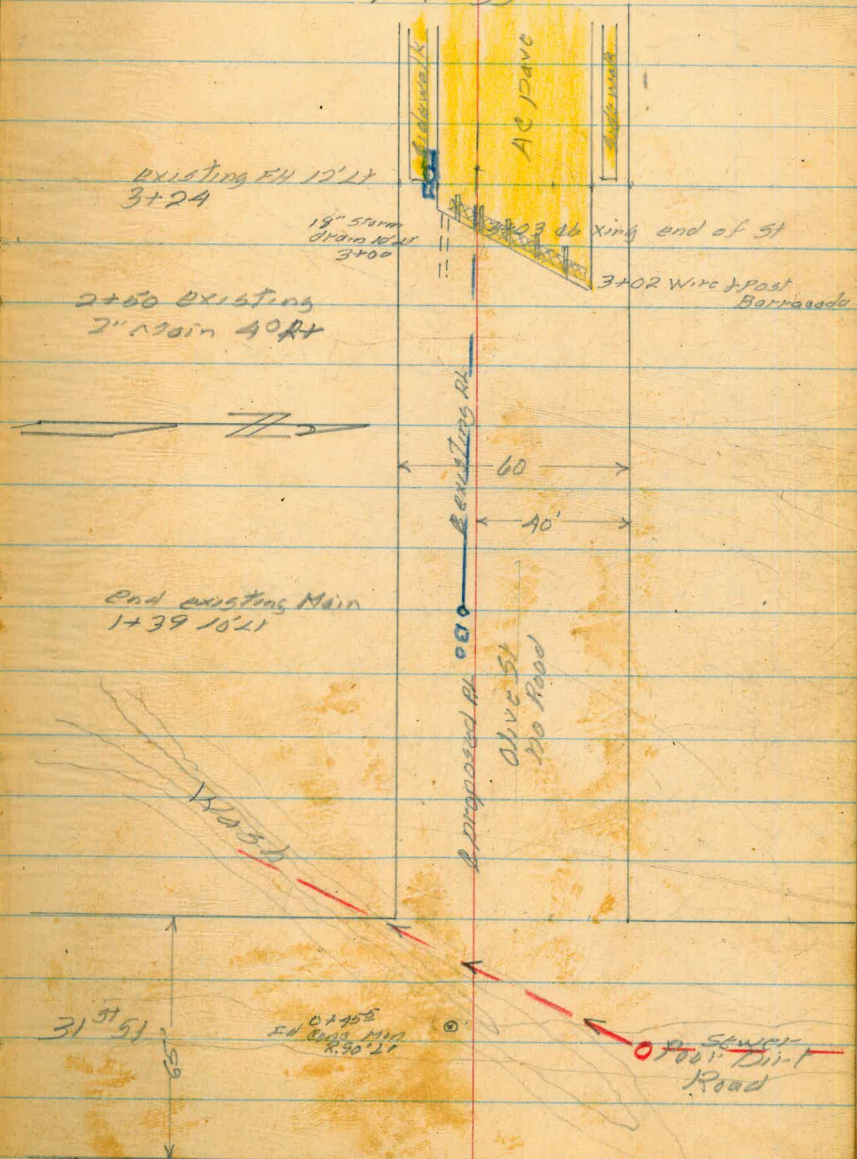 Sidewalk
AC Pave
Sidewalk
existing FH 12' Lt
3+24
18" Storm
drain 10' Lt
3+00
3+03 xing end of St
3+02 Wire & Post
Barracade
2+50 existing
2" Main 40 Rt
existing PL
60
40'
End existing Main
1+39 10' Lt
BO
Olive St
No Road
proposed PL
Wash
31st St
65'
0+45⁵
Fd Conc Mon
Sewer
Poor Dirt
Road